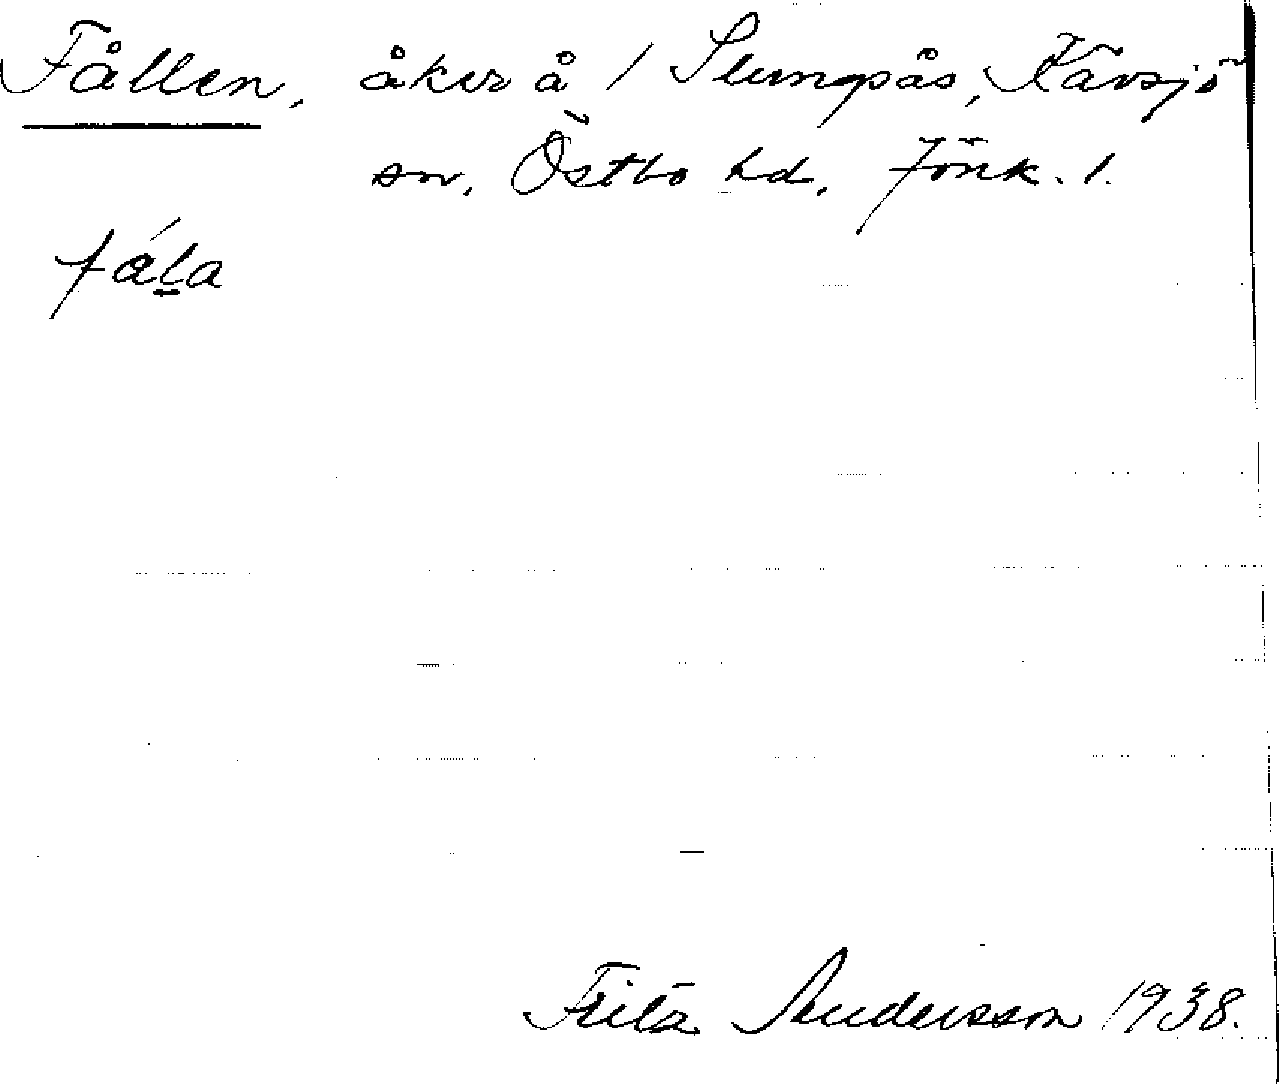 Fållen, åker å / Slungsås, Kävsjö
sn, Östbo hd, Jönk. l.
fåla
Frita Andersson 1938.